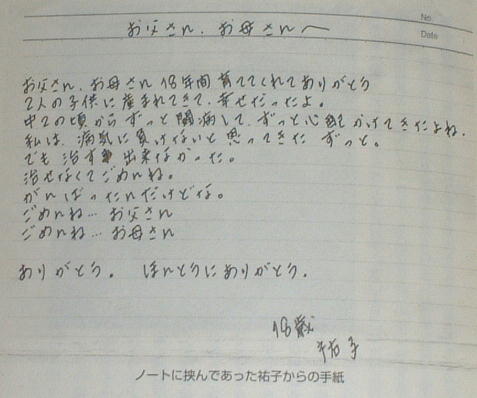 No.
Date
お父さん、お母さんへ
お父さん、お母さん 18年間育ててくれてありがとう
2人の子供に産まれてきて、幸せだったよ。
中2の頃からずっと闘病して、ずっと心配かけてきたよね。
私は、病気に負けないと思ってきた ずっと。
でも治す事出来なかった。
治せなくてごめんね。
がんばったんだけどな。
ごめんね…お父さん
ごめんね…お母さん
ありがとう。 ほんとうにありがとう。
18歳
祐子
ノートに挟んであった祐子からの手紙